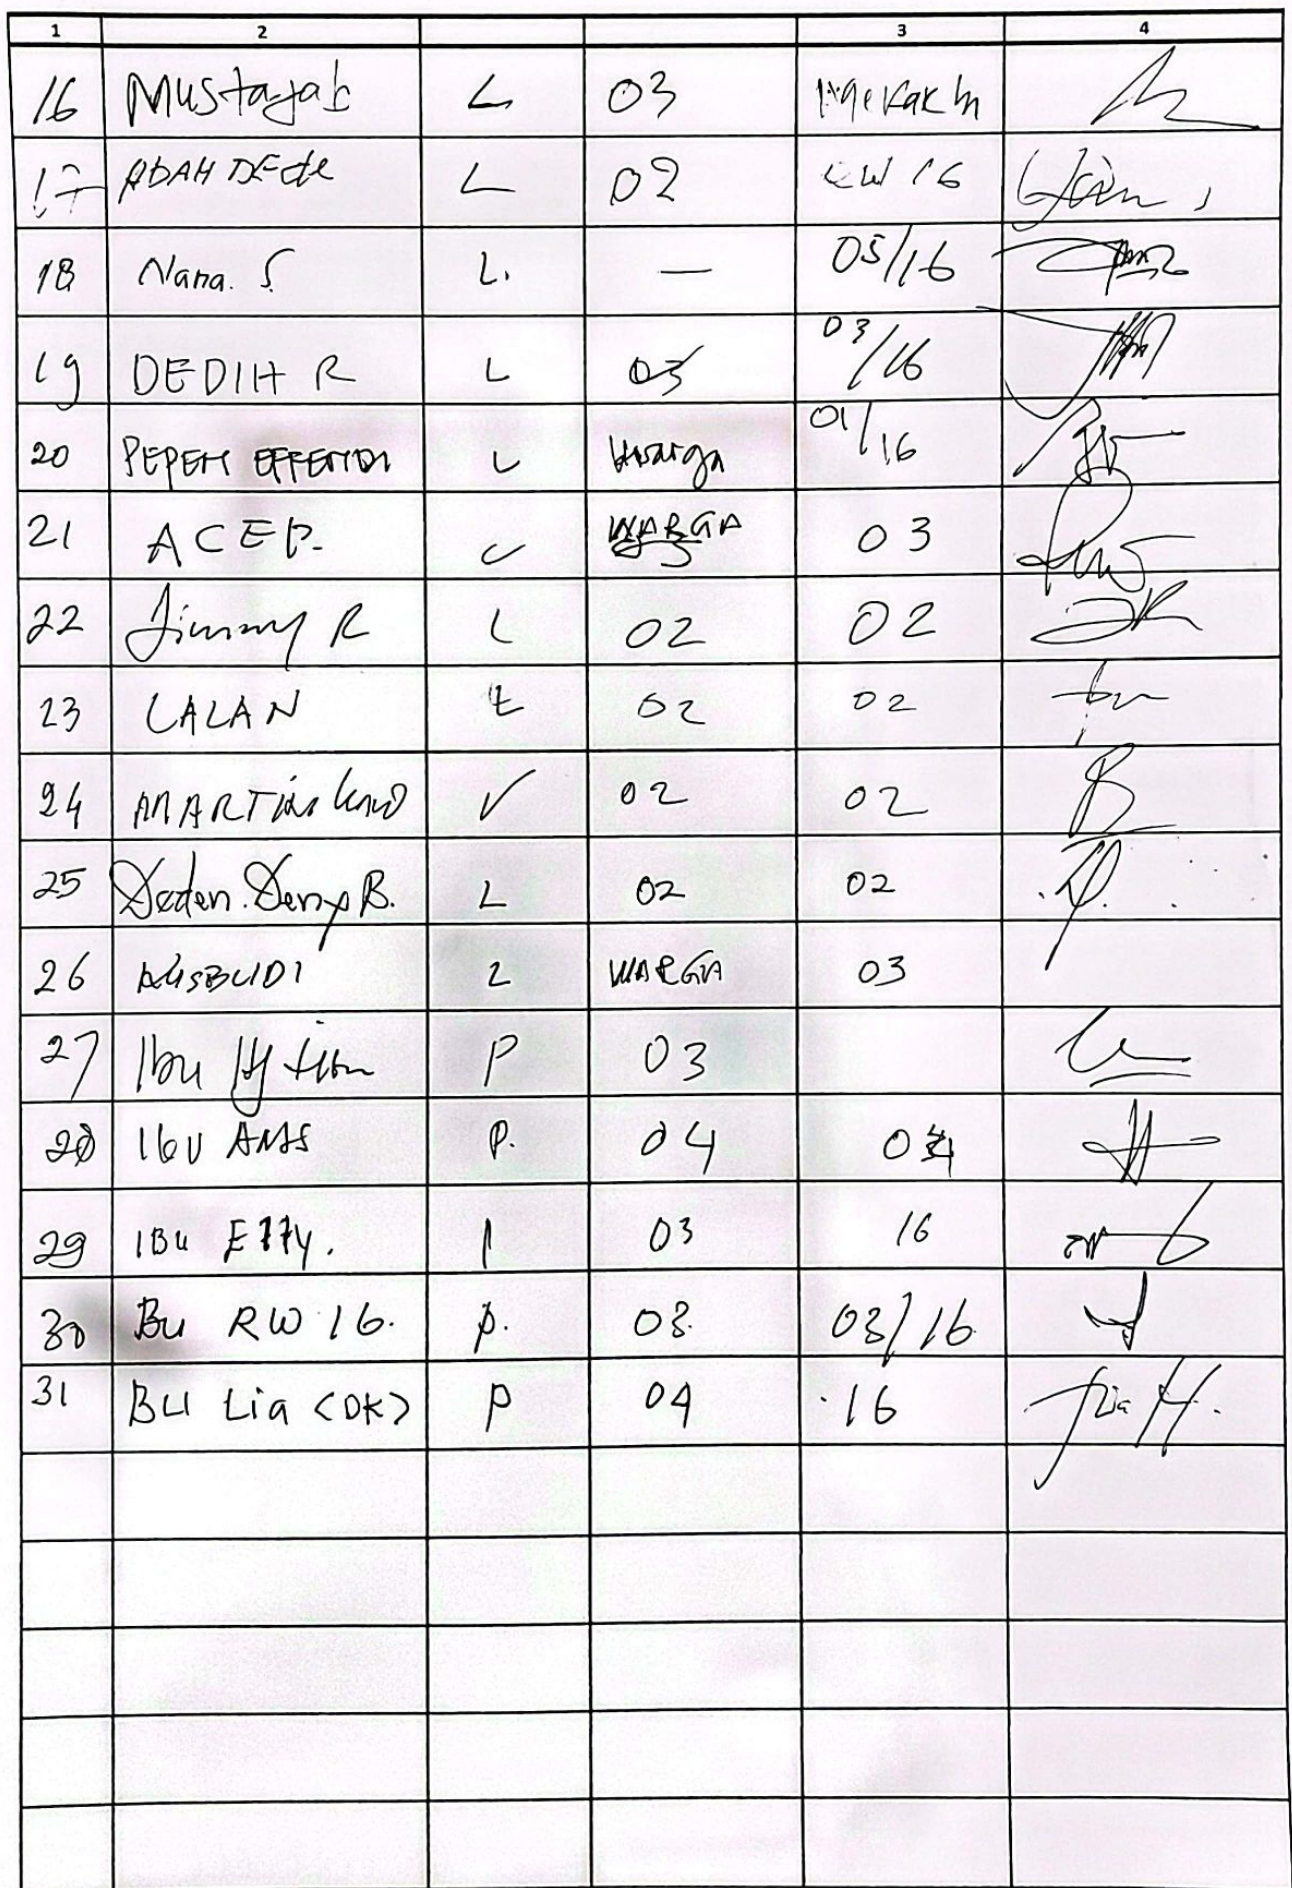 1 2 3 4
16 Mustajab L 03
17 ABAH DEde L 02 RW 16
18 Nana. S. L. — 05/16
19 DEDIH R L 03 03/16
20 PEPEN EFFENDI L Warga 01/16
21 ACEP. L WARGA 03
22 Jimmy R L 02 02
23 LALAN L 02 02
24 02 02
25 Deden. Deny B. L 02 02
26 AGSBUDI L WARGA 03
27 Ibu Hj P 03
28 IBU P. 04 04
29 IBU Elly. P 03 16
30 Bu RW 16. p. 03 03/16
31 Bu Lia (DK) P 04 16